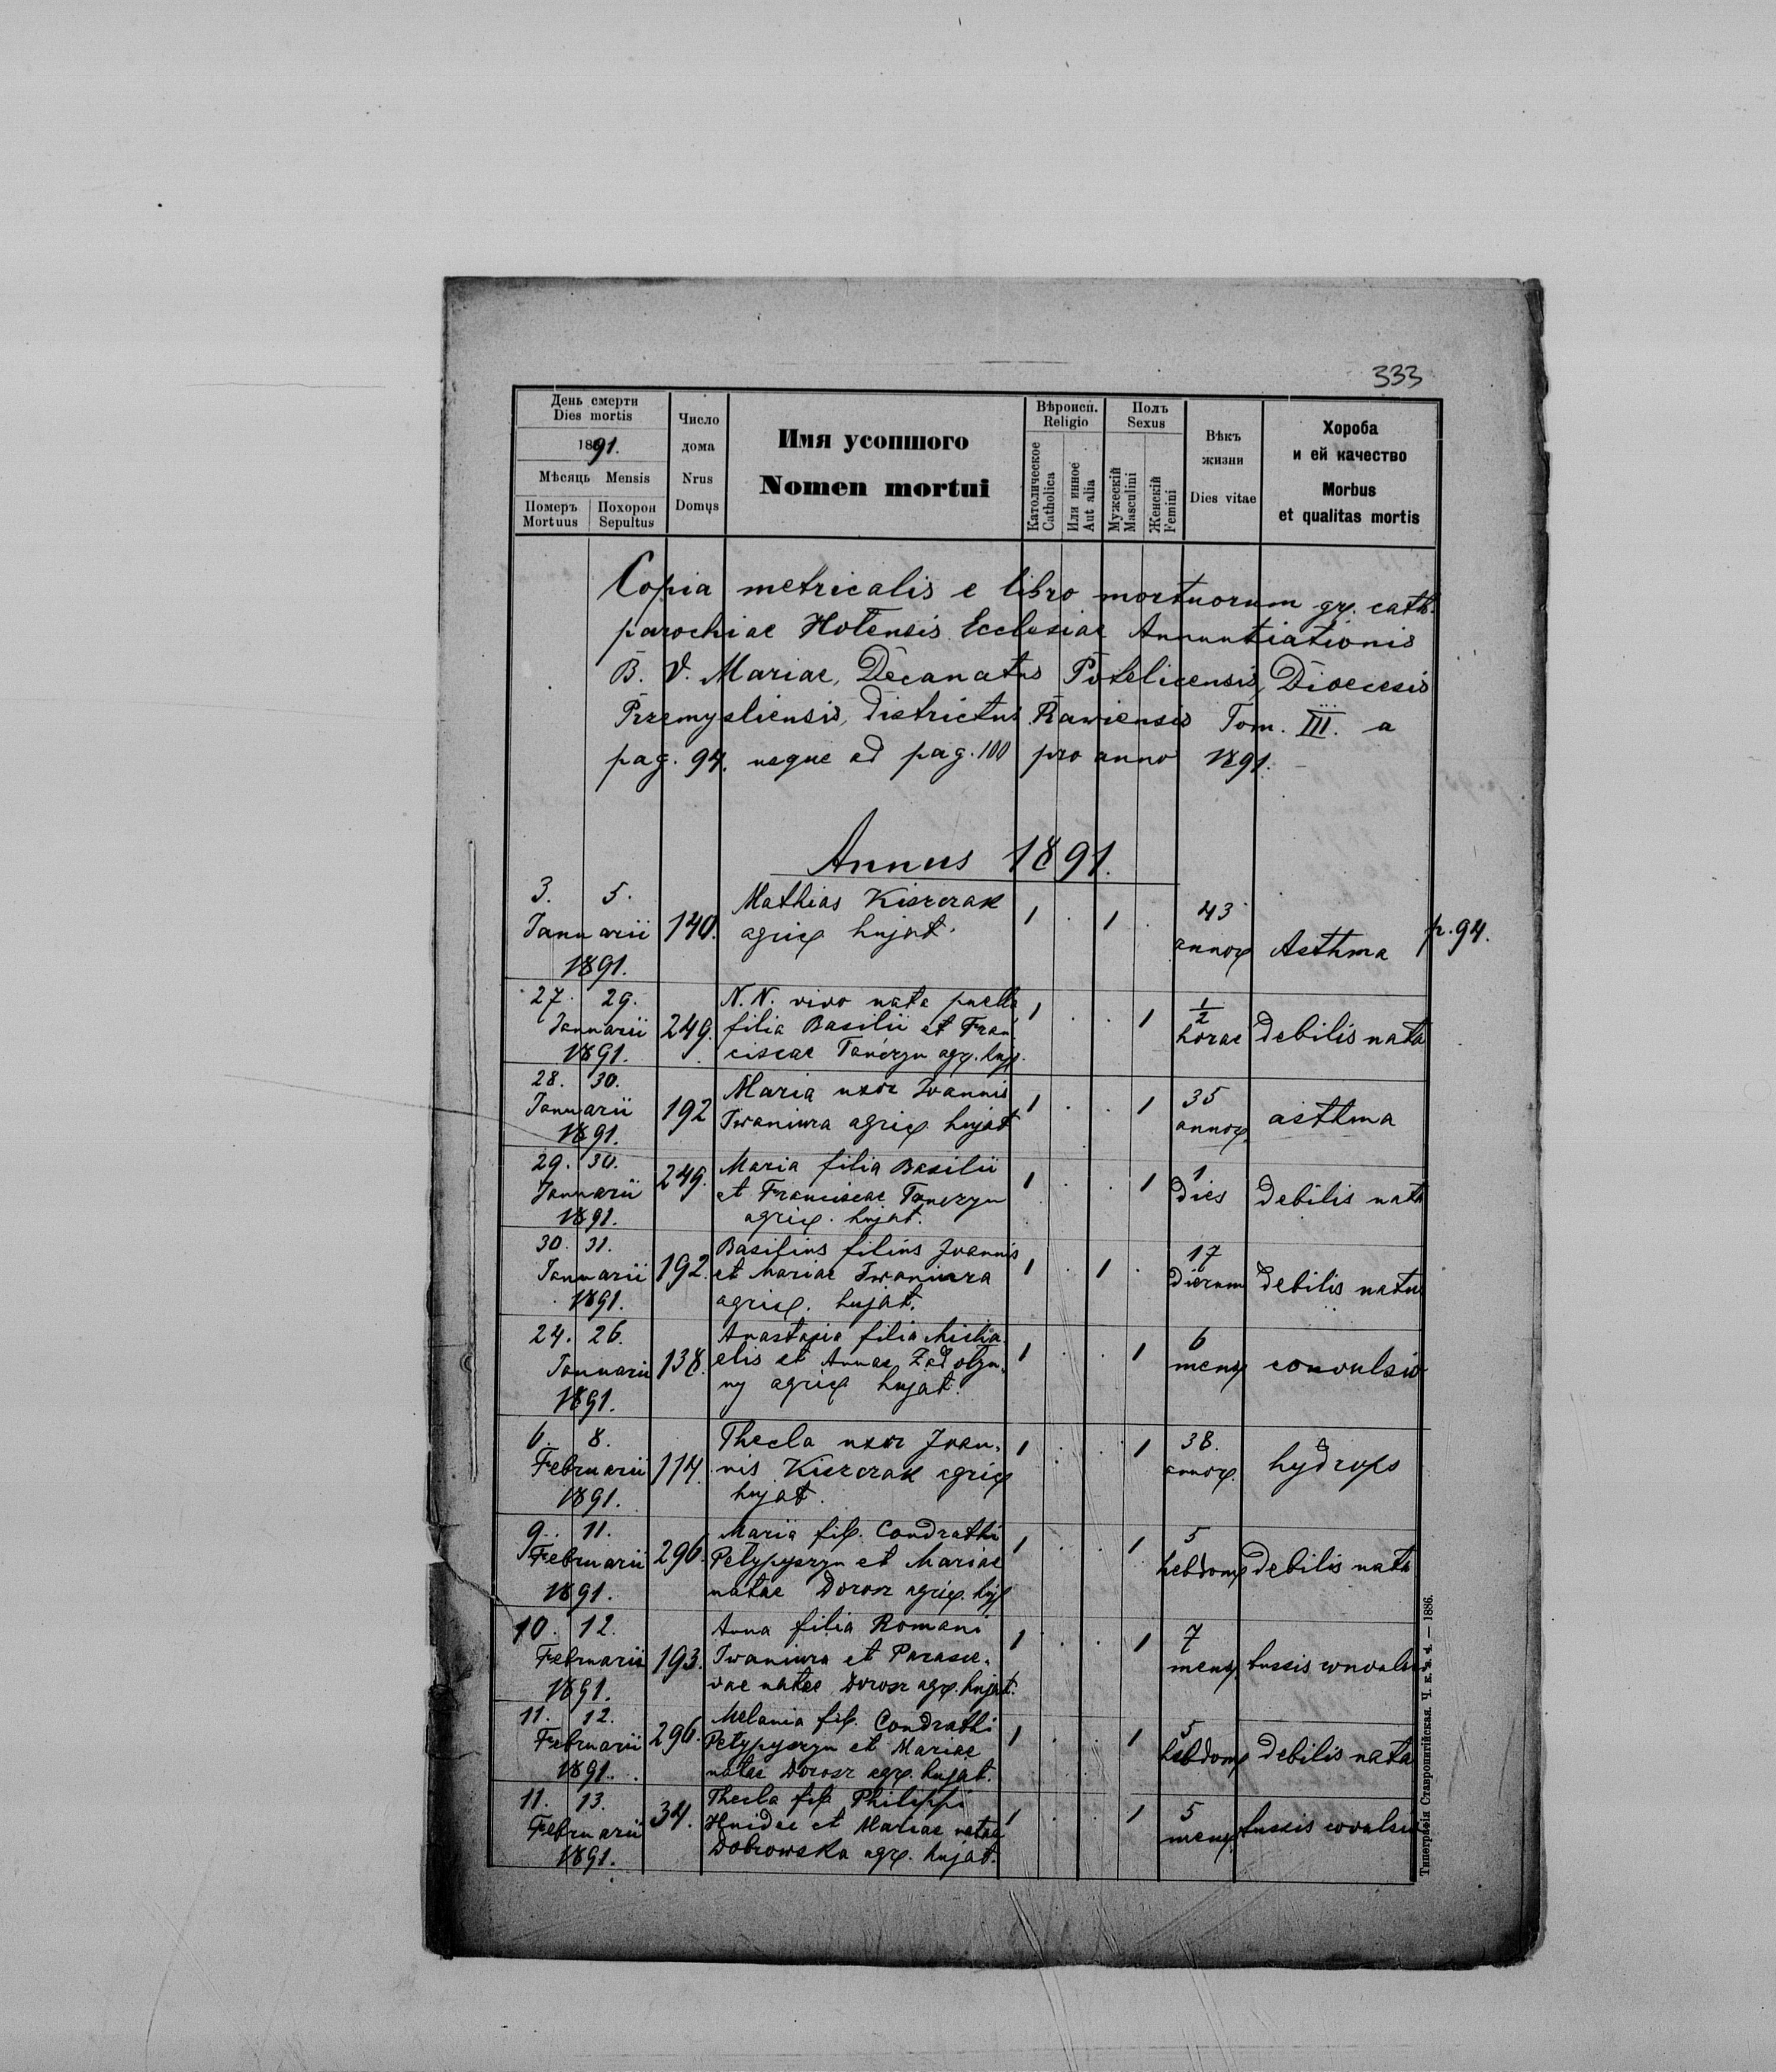 333
День смерти
Dies mortis
1891.
Мѣсяць Mensis
Померъ Похорон
Mortuus Sepultus
Число
дома
Nrus
Domus
Имя усопшого
Nomen mortui
Вѣроисп.
Religio
Католическое
Catholica
Или инное
Aut alia
Полъ
Sexus
Мужескій
Masculini
Женскій
Femini
Вѣкъ
жизни
Dies vitae
Хороба
и ей качество
Morbus
et qualitas mortis
Copia metricalis e libro mortuorum gr. cath.
parochiae Hotensis Ecclesiae Annuntiationis
B. V. Mariae, Decanatus Potelicensis, Dioecesis
Przemysliensis, districtus Rawiensis Tom. III. a
pag. 94. usque ad pag. 100 pro anno 1891.
Annus 1891.
3. 5. Mathias Kiszczak 43
Januarii 140. agric hujat. 1 . 1 . annor Asthma p. 94.
1891.
27. 29. N. N. vivo nata puella 1/2
Januarii 249. filia Basilii et Fran 1 . . 1 horae debilis nata
1891. ciscae Tanczyn agr. huj.
28. 30. Maria uxor Joannis 35
Januarii 192 Iwaniura agric hujat 1 . . 1 annor asthma
1891.
29. 30. Maria filia Basilii 1
Januarii 249. et Franciscae Tanczyn 1 . . 1 dies debilis nata
1891. agric. hujat.
30. 31. Basilius filius Joannis 17
Januarii 192. et Mariae Iwaniura 1 . 1 . dierum debilis natus
1891. agric. hujat.
24. 26. Anastasia filia Micha 6
Januarii 138. elis et Annae 1 . . 1 mens convulsio
1891. ny agric hujat.
6. 8. Thecla uxor Joan. 38.
Februarii 114. nis Kiszczak agric 1 . . 1 annor. hydrops
1891. hujat.
9. 11. Maria fil. Condrathi 5
Februarii 296. Petypyszyn et Mariae 1 . . 1 hebdom debilis nata
1891. natae Dorosz agric. huj
10. 12. Anna filia Romani 7
Februarii 193. Iwaniura et Parasce. 1 . . 1 mens. tussis convuls
1891. vae natae Dorosz agr. hujat.
11. 12. Melania fil. Condrathi 5
Februarii 296. Petypyszyn et Mariae 1 . . 1 hebdom debilis nata
1891. natae Dorosz agr. hujat.
11. 13. Thecla fil Philippi 5
Februarii 34. Hnidec et Mariae natae 1 . . 1 mens tussis covulsiv
1891. Dobrowska agr. hujat.
Типографія Ставропигійская. Ч. к. в. 4. — 1886.